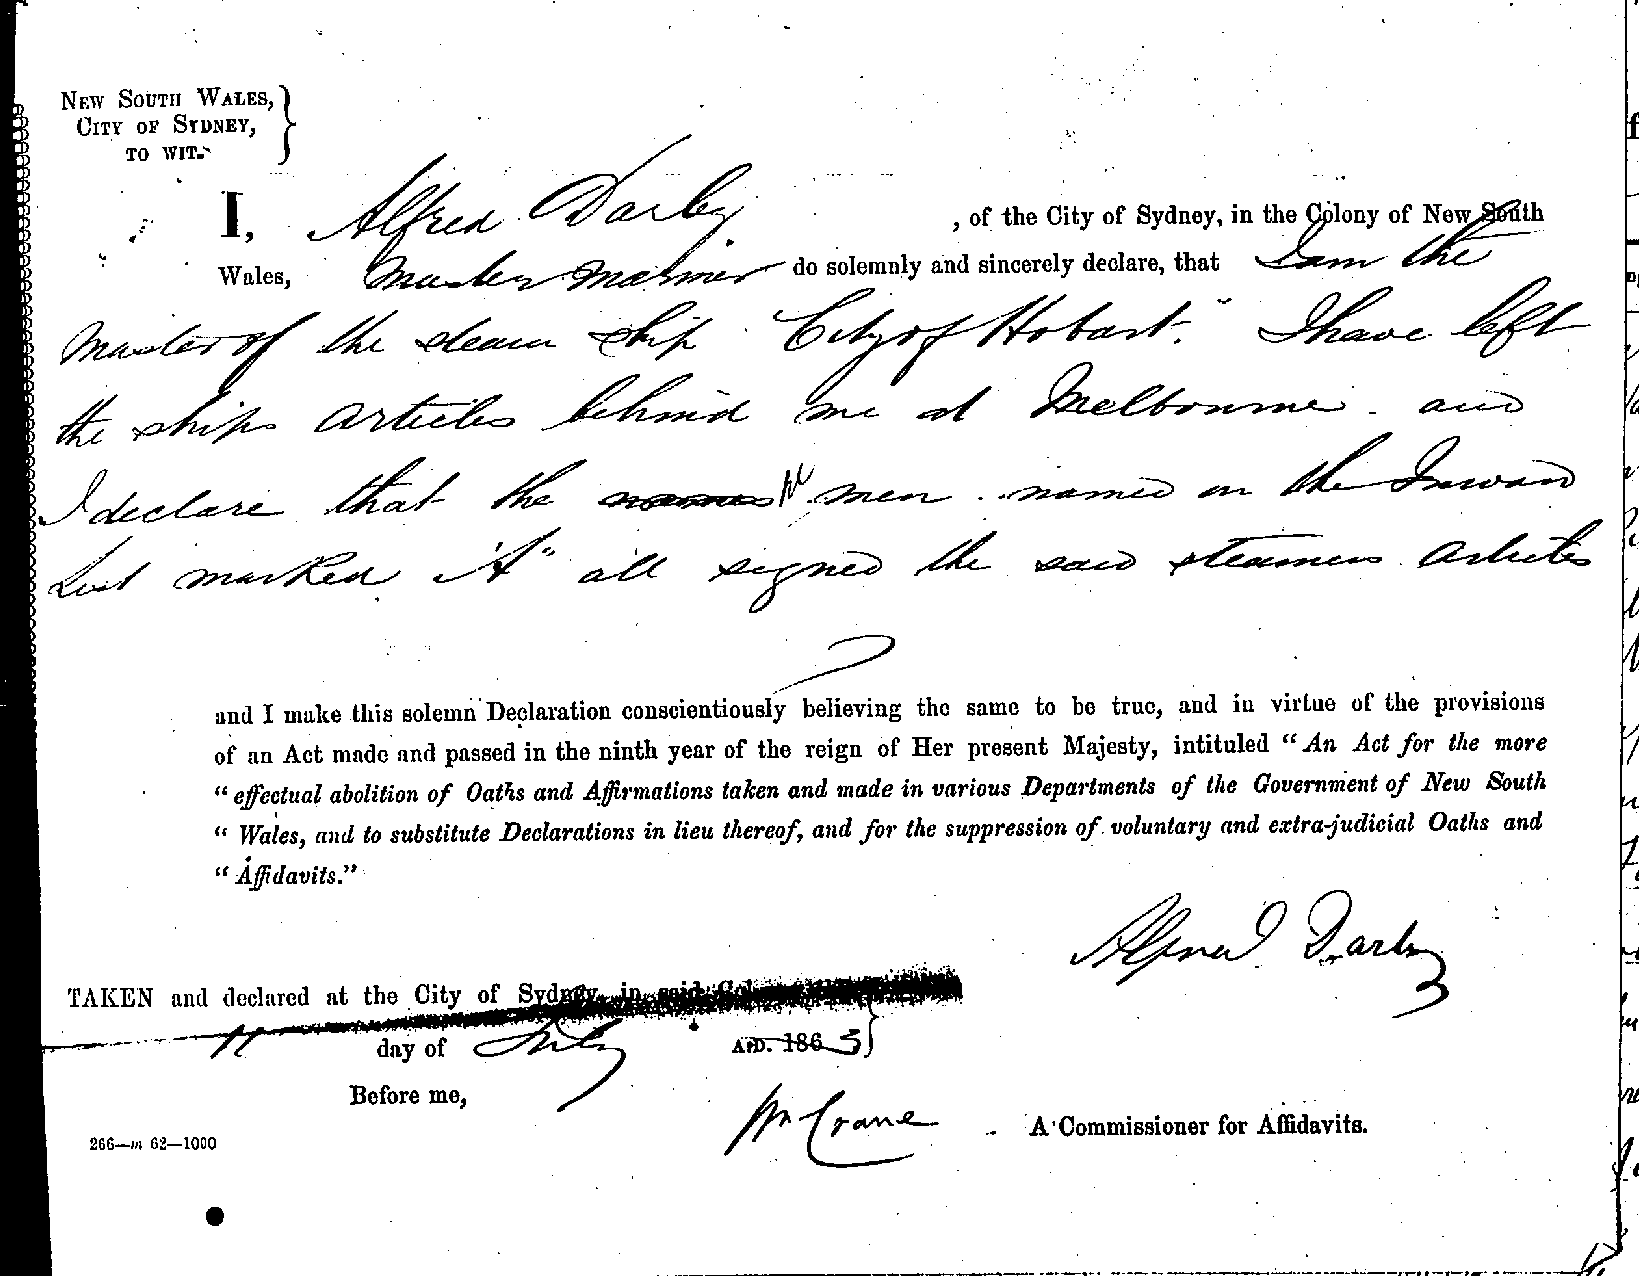 NEW SOUTH WALES,
CITY OF SYDNEY,
TO WIT.
I, Alfred Darby, of the City of Sydney, in the Colony of New South
Wales, Master Mariner do solemnly and sincerely declare, that I am the
Master of the steam ship "City of Hobart." I have left
the ships articles behind me at Melbourne and
I declare that the names men named on the Inward
List marked "A" all signed the said steamers articles
and I make this solemn Declaration conscientiously believing the same to be true, and in virtue of the provisions
of an Act made and passed in the ninth year of the reign of Her present Majesty, intituled "An Act for the more
"effectual abolition of Oaths and Affirmations taken and made in various Departments of the Government of New South
"Wales, and to substitute Declarations in lieu thereof, and for the suppression of voluntary and extra-judicial Oaths and
"Affidavits."
Alfred Darby
TAKEN and declared at the City of Sydney, in said
11 day of July A.D. 1863
Before me,
Wm Crane A Commissioner for Affidavits.
266—m 62—1000